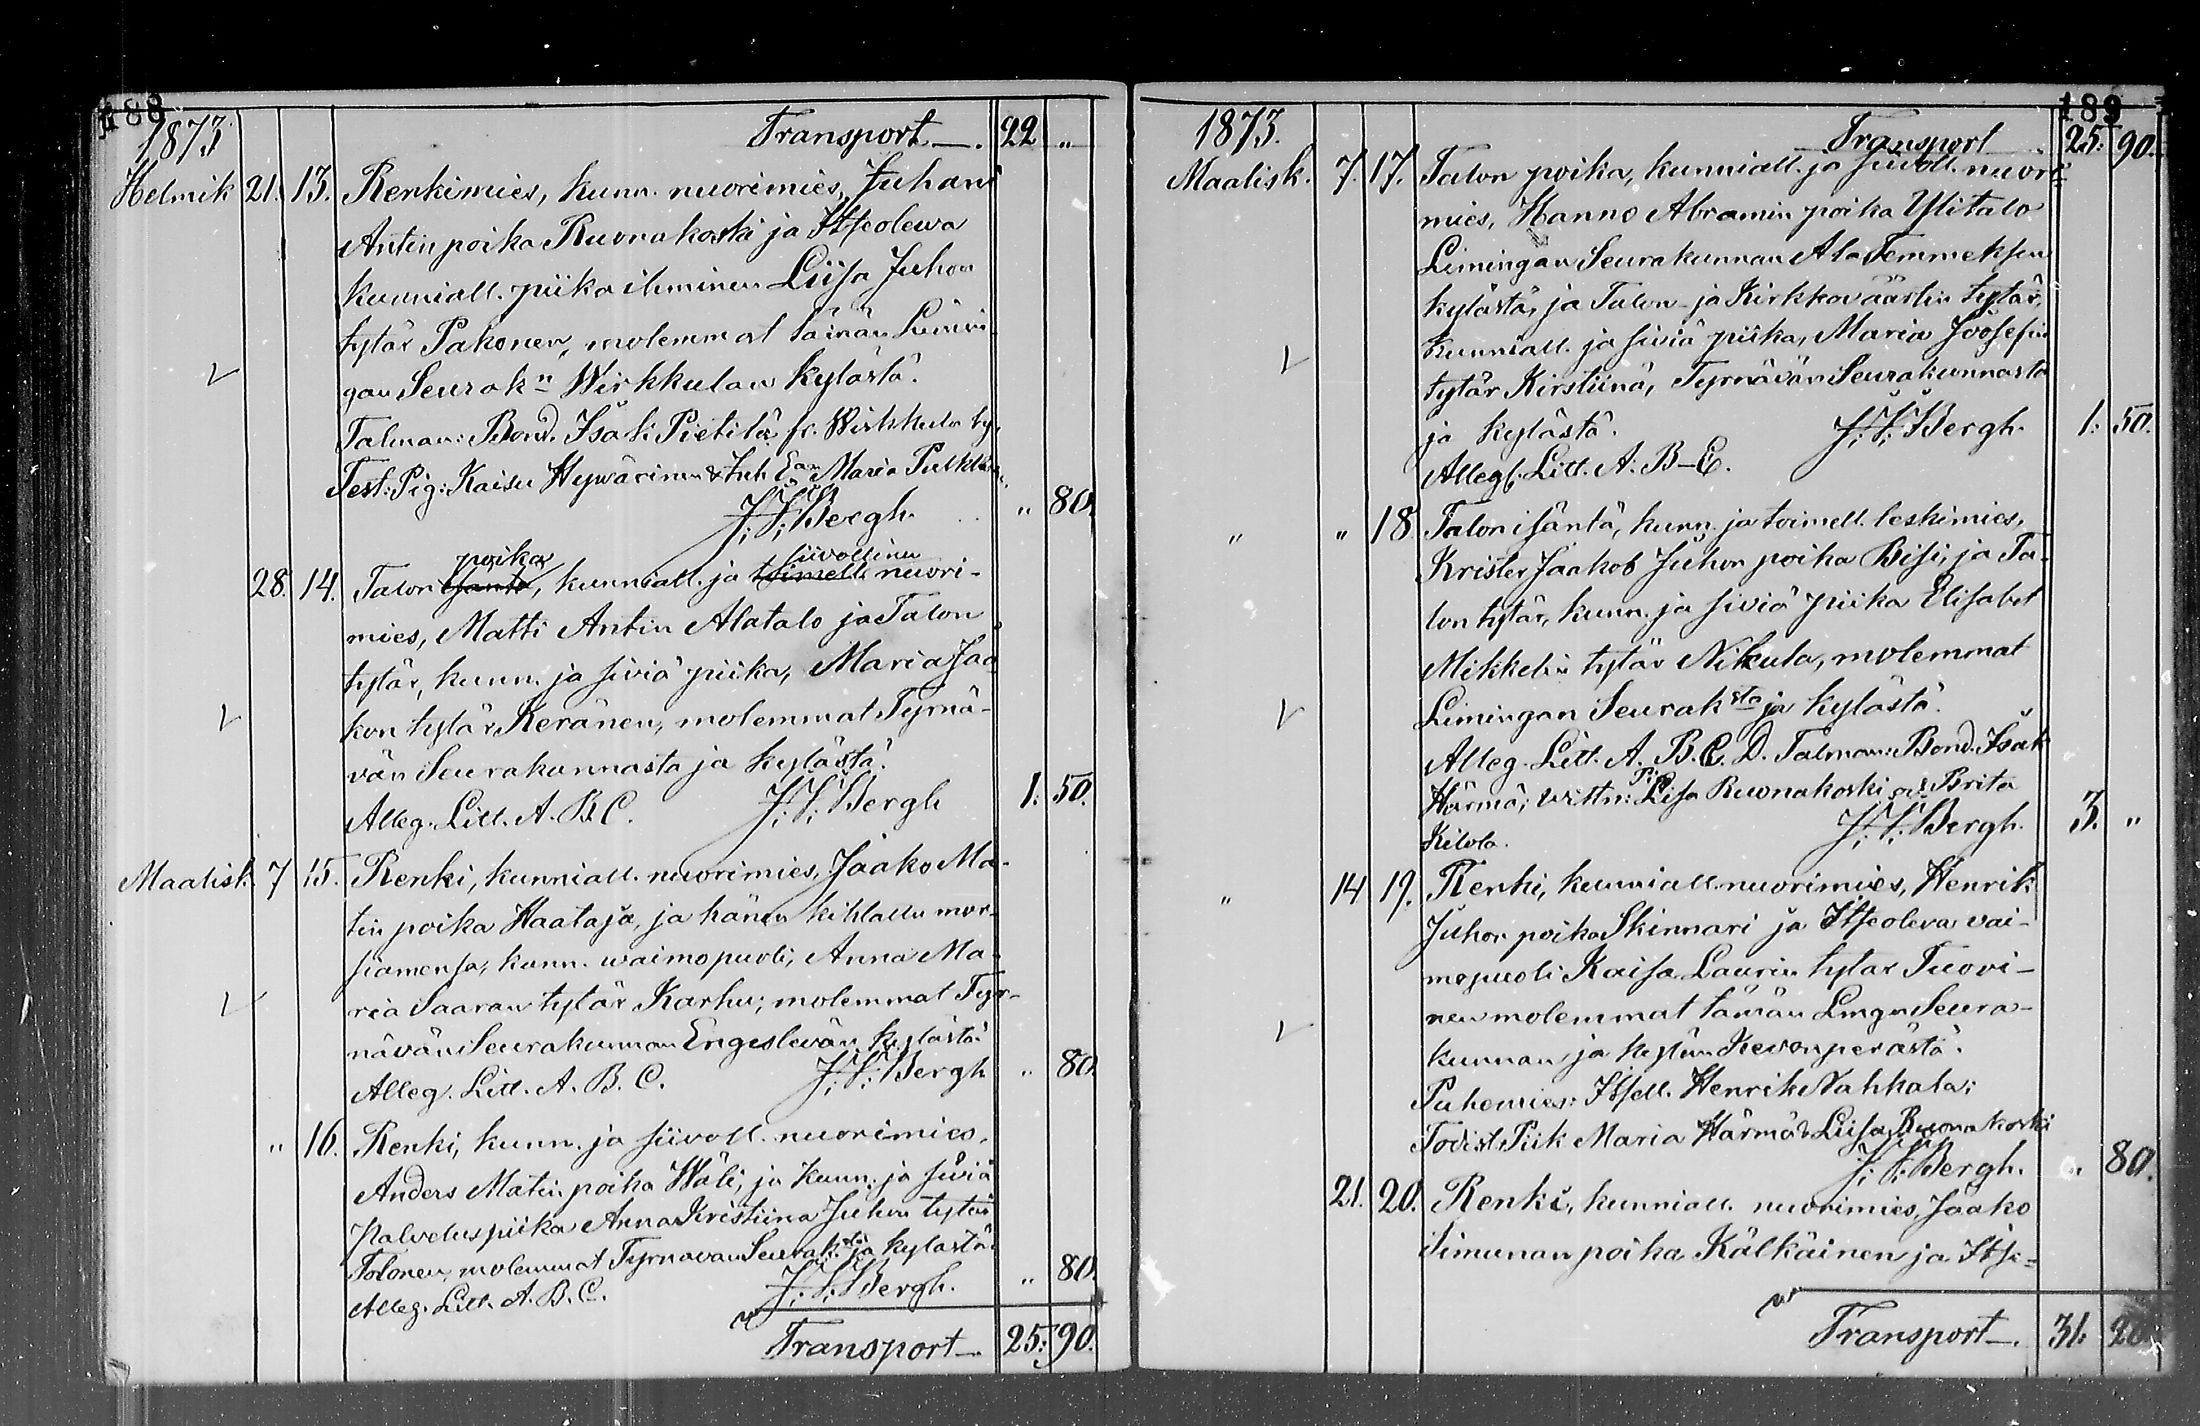 188
1873. Transport —. 22 "
Helmik 21. 13. Renkimies, kunn. nuorimies, Juhani
Antin poika Ruonakoski ja Itseolewa
kunniall. piika ihminen Liisa Juhon
tytär Pakonen, molemmat tämän Limin-
gan Seurakn Wirkkulan kylästä.
Talman: Bond. Isak Pietilä fr. Wirkkula by,
Test: Pig: Kaisu Heywärinen & Inh. Ean Maria Pulkkinen
J. F. Bergh. " 80.
poika siivollinen
28. 14. Talon isäntä, kunniall. ja toimell. nuori-
mies, Matti Antin Alatalo ja Talon
tytär, kunn. ja siviä piika, Maria Jaa-
kon tytär Keränen, molemmat Tyrnä-
vän Seurakunnasta ja kylästä.
Alleg. Litt. A. B. C. J. F. Bergh 1. 50.
Maalisk. 7 15. Renki, kunniall. nuorimies, Jaako Ma-
tin poika Haataja, ja hänen kihlattu mor-
siamensa, kunn. waimopuoli, Anna Ma-
ria Saaran tytär Karhu; molemmat Tyr-
nävän Seurakunnan Engeslevän kylästä.
Alleg. Litt. A. B. C. J. F. Bergh " 80.
" 16. Renki, kunn. ja siivoll. nuorimies,
Anders Matin poika Wäli, ja kunn. ja siviä
palveluspiika Anna Kristiina Juhon tytär
Tolonen, molemmat Tyrnävän Seurak.sta ja kylästä.
Alleg. Litt. A. B. C. J. F. Bergh. " 80.
Transport —. 25. 90.
189
1873. Transport 25. 90.
Maalisk. 7. 17. Talon poika, kunniall. ja siivoll. nuori-
mies, Hanno Abramin poika Ylitalo
Limingan Seurakunnan Ala Temmeksen
kylästä, ja Talon- ja Kirkkoväärtin tytär,
kunniall. ja siviä piika, Maria Joosefin
tytär Kirstiinä, Tyrnävän Seurakunnasta
ja kylästä. J. F. Bergh. 1. 50.
Alleg. Litt. A. B–E.
" " 18. Talon isäntä, kunn. ja toimell. leskimies,
Krister Jaakob Juhon poika Bisi, ja Ta-
lon tytär, kunn. ja siviä piika Elisabet
Mikkelin tytär Nikula, molemmat
Limingan Seuraksta ja kylästä.
Alleg. Litt. A. B. C. D. Talman: Bond. Isak
Härmä; vittn: Pig. Lisa Ruonakoski och Brita
Kilola. J. F. Bergh. 3. "
" 14 19. Renki, kunniall. nuorimies, Henrik
Juhon poika Skinnari ja Itseoleva vai-
mopuoli Kaisa Laurin tytär Tuovi-
nen molemmat tämän Lmgn Seura-
kunnan ja kylän Ketonperästä.
Puhemies: Itsell. Henrik Nahkala;
Todist. Piik Maria Härmä & Liisa Ruonakoski
J. F. Bergh. " 80.
21. 20. Renki, kunniall. nuorimies, Jaako
Simunan poika Kälkäinen ja Itse-
Transport —. 31. 20.